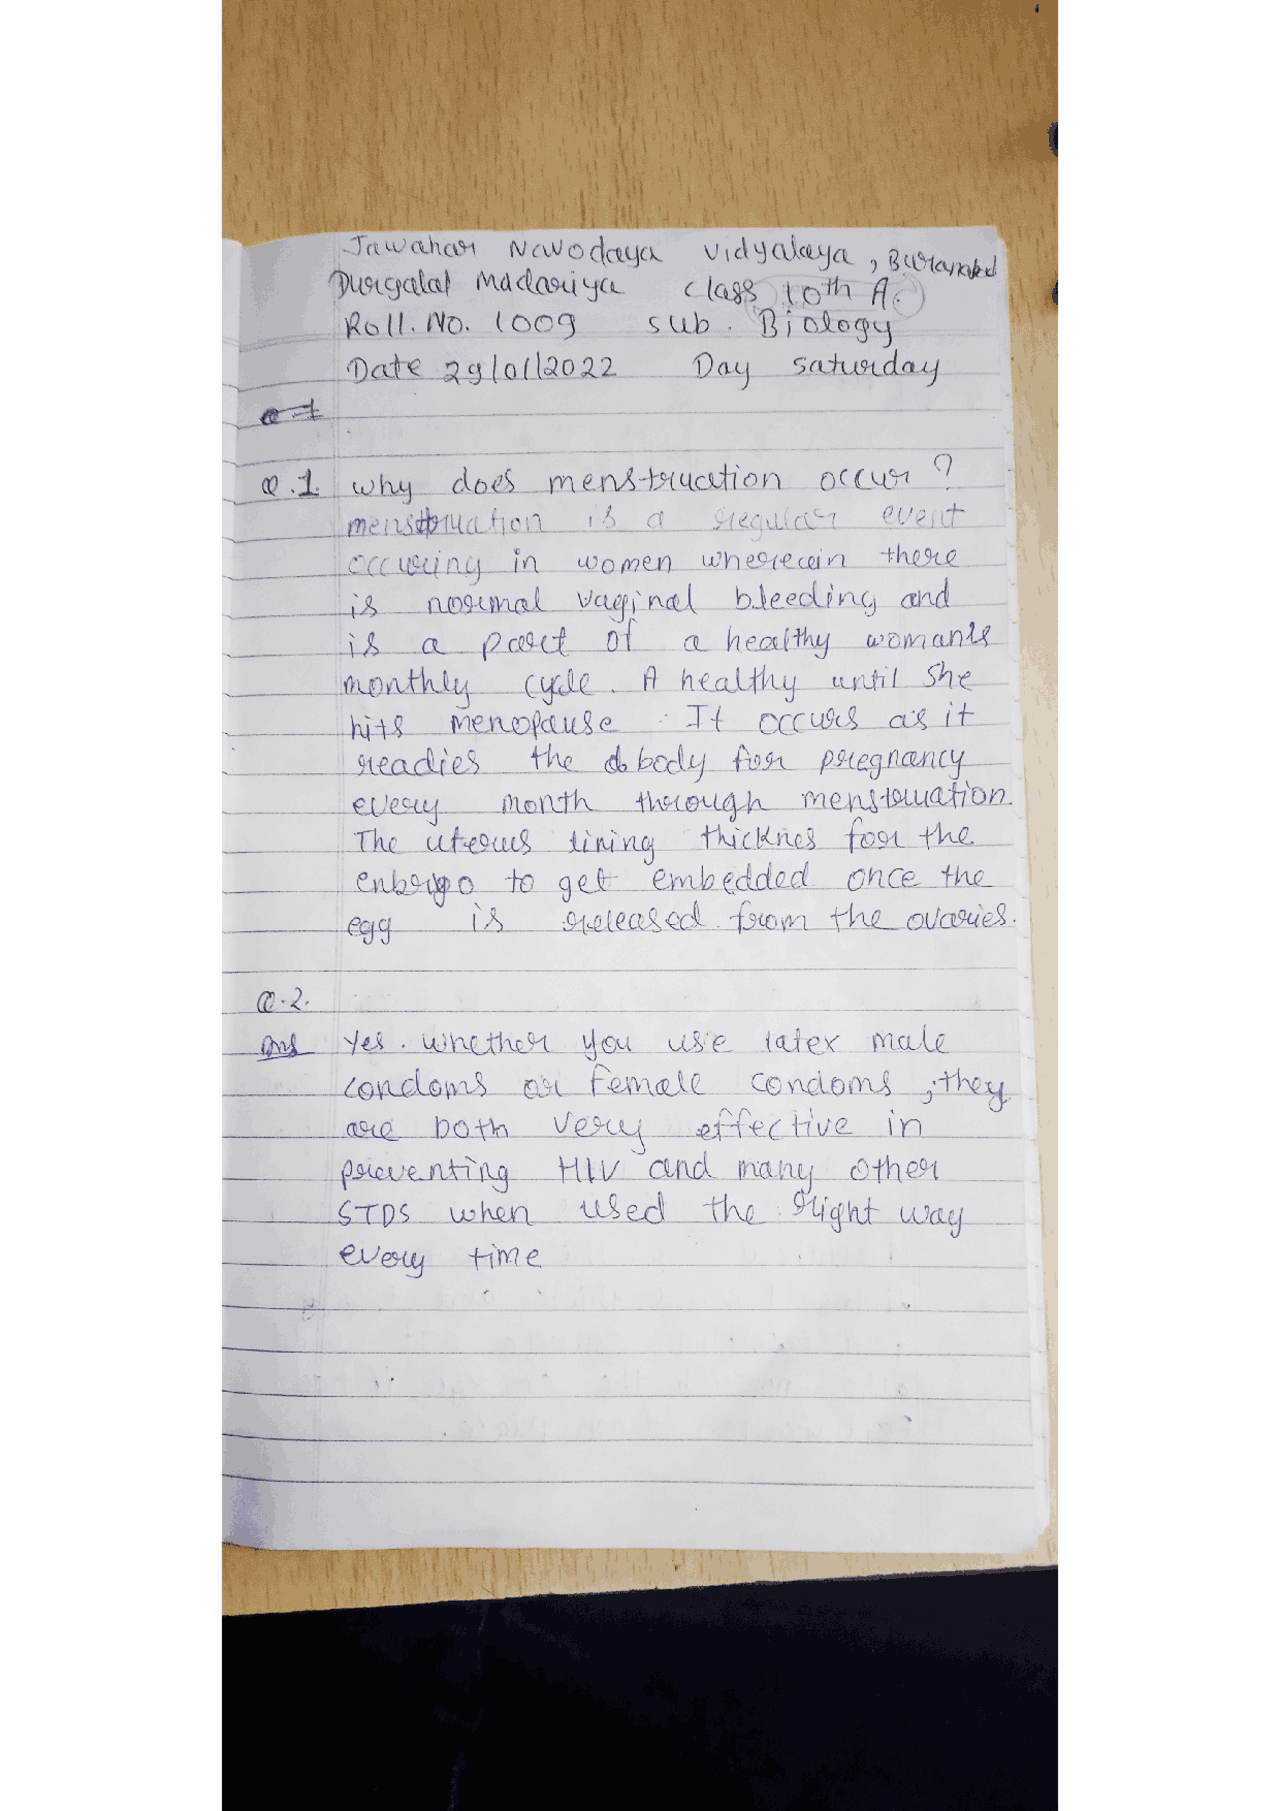 Jawahar Navodaya Vidyalaya,
Durgalal Madariya class 10th A.
Roll. No. 1009 sub. Biology
Date 29/01/2022 Day saturday
Q.1. why does menstruction occur ?
menstruation is a regular event
occuring in women wherein there
is normal vaginal bleeding and
is a part of a healthy woman's
monthly cycle. A healthy until she
hits menopause. It occurs as it
readies the body for pregnancy
every month through menstruation.
The uterus lining thicknes for the
enbryo to get embedded once the
egg is released from the ovaries.
Q.2.
Ans Yes. whether you use latex male
condoms or female condoms, they
are both very effective in
preventing HIV and many other
STDS when used the right way
every time